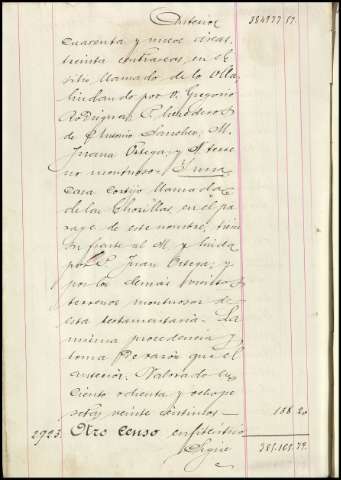 Anterior 384977.57.
cuarenta y nueve áreas,
treinta centiáreas, en el
sitio llamado de lo
lindando por D. Gregorio
Rodríguez, P. herederos
de Antonio Sanchez, M.
Juana Ortega, y N. terre
no montuoso. Y una
casa cortijo llamada
de las Chorillas, en el pa
rage de este nombre, tiene
su frente al M. y linda
por P. Juan Ortega, y
por los demás vientos
terrenos montuosos de
esta testamentaria. La
misma procedencia y
toma de razon que el
anterior. Valorado en
ciento ochenta y ocho pe
setas veinte céntimos— 188 20
2923. Otro censo enfitéutico
Sigue